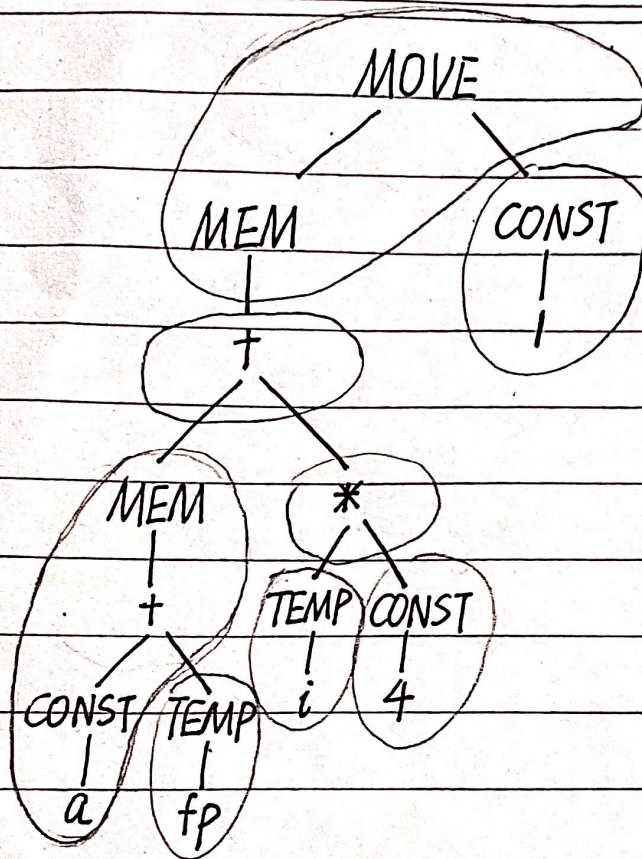 MOVE
MEM CONST
1
+
MEM *
+ TEMP CONST
CONST TEMP i 4
a fp